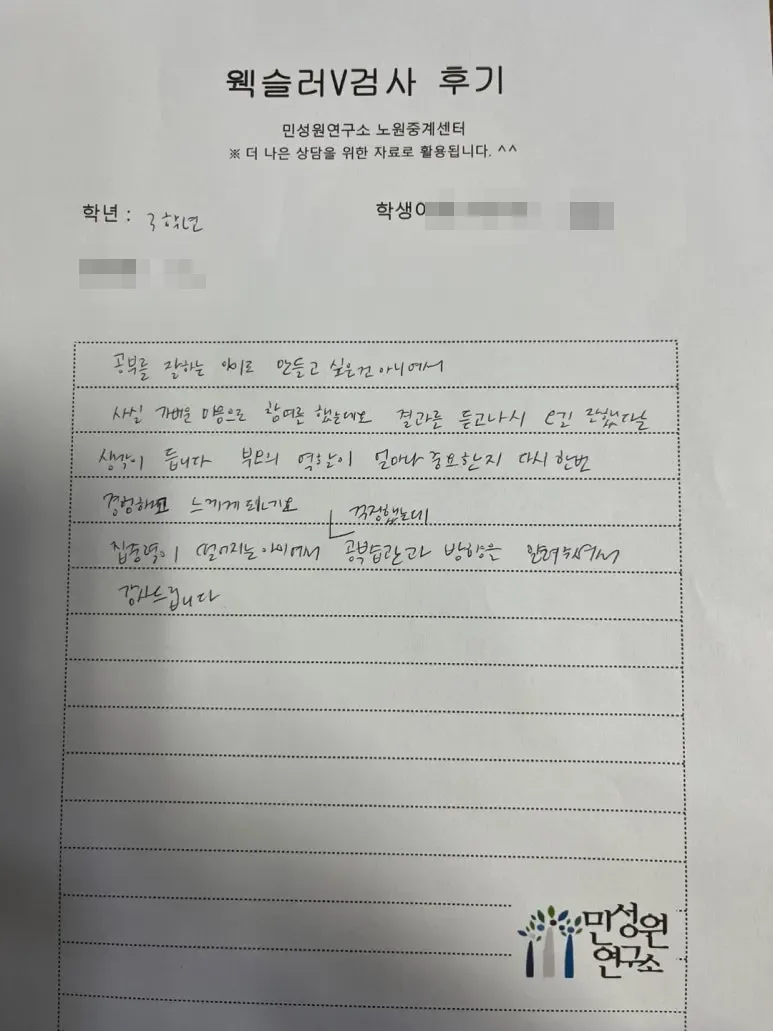 웩슬러V검사 후기
민성원연구소 노원중계센터
※ 더 나은 상담을 위한 자료로 활용됩니다. ^^
학년 : 3학년 학생
공부를 잘하는 아이로 만들고 싶은건 아니여서
사실 가벼운 마음으로 참여를 했는데요 결과를 듣고나서 잘했다는
생각이 듭니다 부모의 역할이 얼마나 중요한지 다시 한번
경험하고 느끼게 되네요
걱정했는데
집중력이 떨어지는 아이여서 공부습관과 방향을 알려주셔서
감사드립니다
민성원
연구소